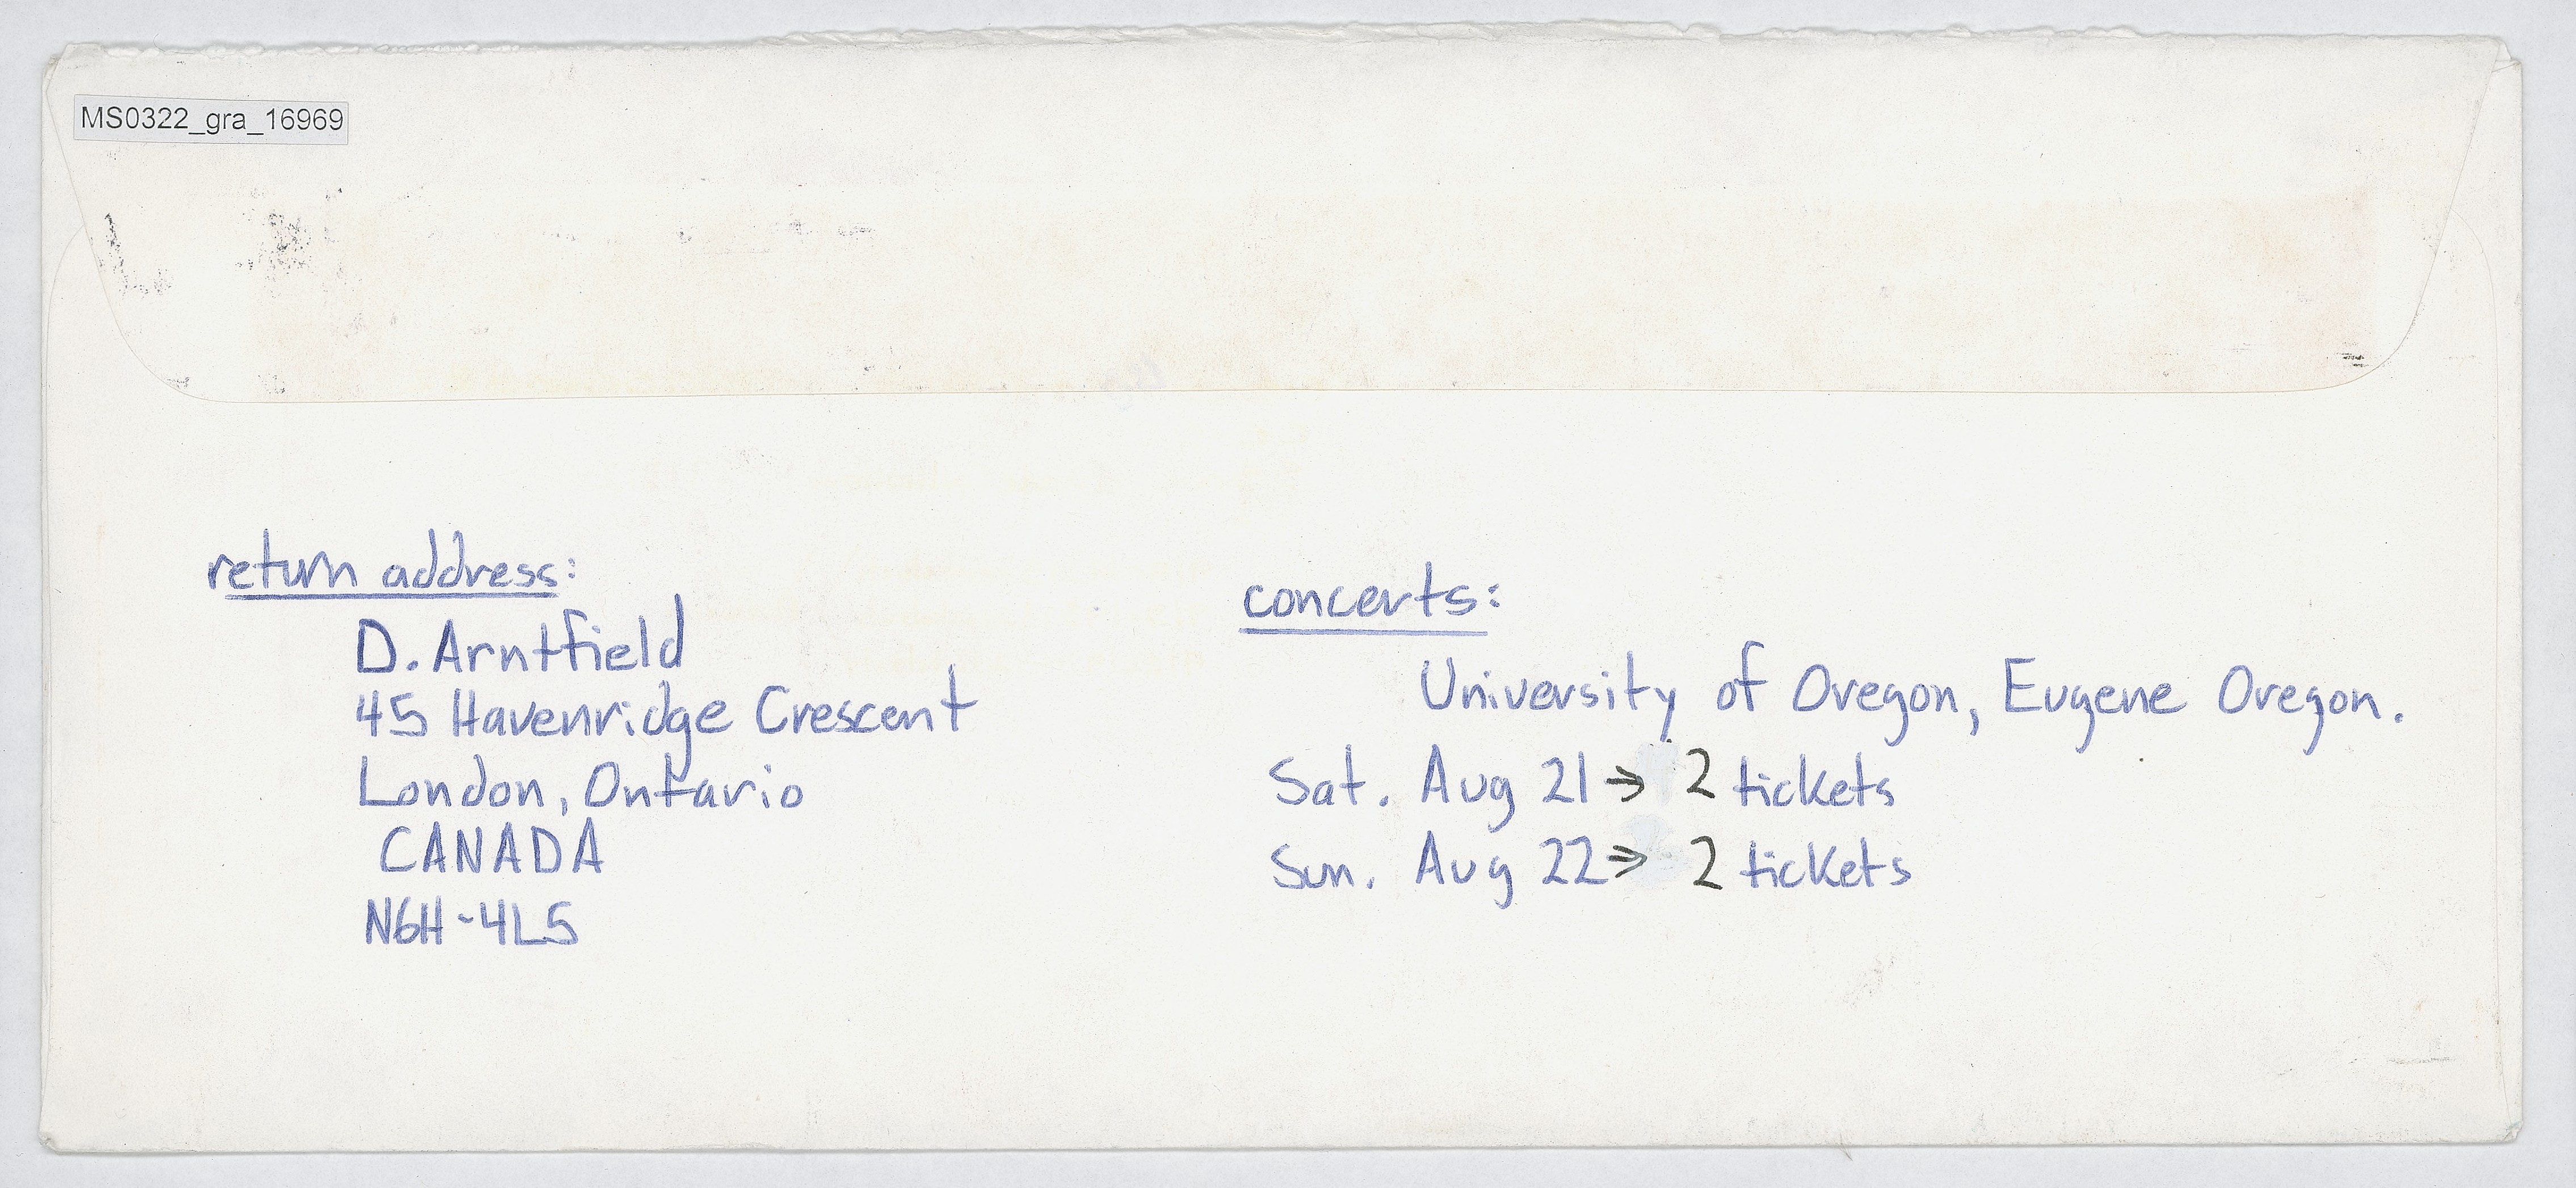 MS0322_gra_16969
return address:
D. Arntfield
45 Havenridge Crescent
London, Ontario
CANADA
N6H-4L5
concerts:
University of Oregon, Eugene Oregon.
Sat. Aug 21 → 2 tickets
Sun. Aug 22 → 2 tickets